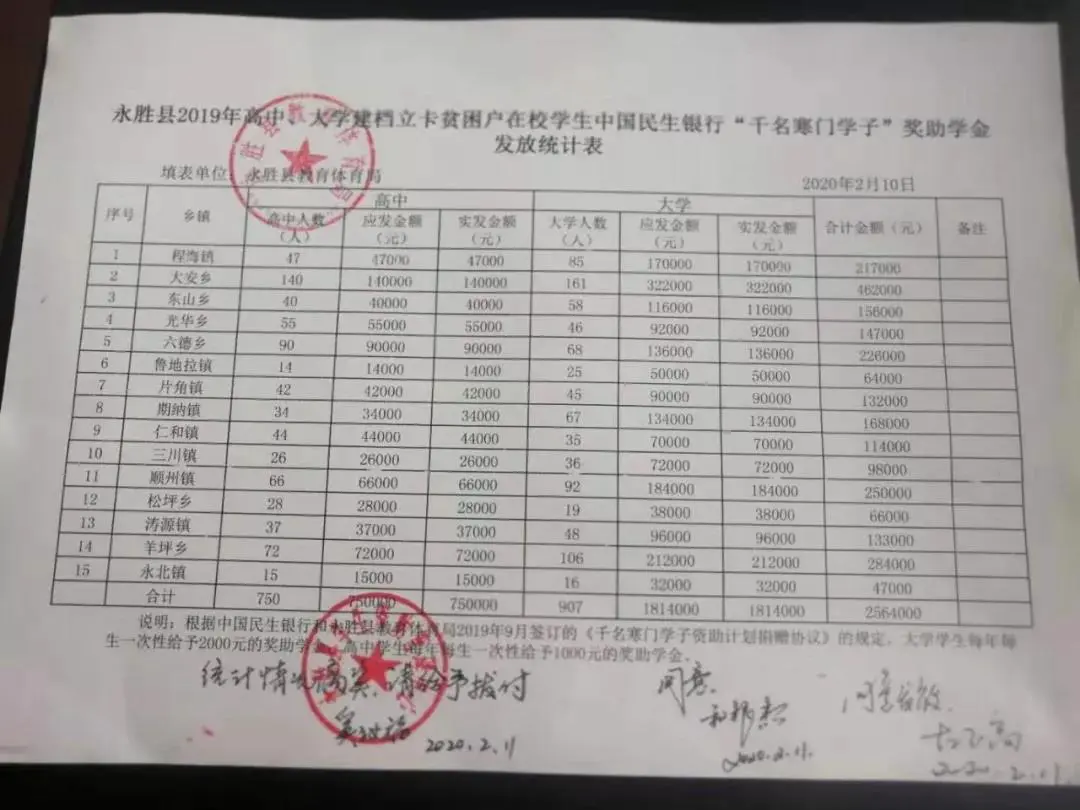 永胜县2019年高中、大学建档立卡贫困户在校学生中国民生银行“千名寒门学子”奖助学金
发放统计表
填表单位：永胜县教育体育局 2020年2月10日
序号 乡镇 高中 大学 合计金额（元） 备注
高中人数（人） 应发金额（元） 实发金额（元） 大学人数（人） 应发金额（元） 实发金额（元）
1 程海镇 47 47000 47000 85 170000 170000 217000
2 大安乡 140 140000 140000 161 322000 322000 462000
3 东山乡 40 40000 40000 58 116000 116000 156000
4 光华乡 55 55000 55000 46 92000 92000 147000
5 六德乡 90 90000 90000 68 136000 136000 226000
6 鲁地拉镇 14 14000 14000 25 50000 50000 64000
7 片角镇 42 42000 42000 45 90000 90000 132000
8 期纳镇 34 34000 34000 67 134000 134000 168000
9 仁和镇 44 44000 44000 35 70000 70000 114000
10 三川镇 26 26000 26000 36 72000 72000 98000
11 顺州镇 66 66000 66000 92 184000 184000 250000
12 松坪乡 28 28000 28000 19 38000 38000 66000
13 涛源镇 37 37000 37000 48 96000 96000 133000
14 羊坪乡 72 72000 72000 106 212000 212000 284000
15 永北镇 15 15000 15000 16 32000 32000 47000
合计 750 750000 750000 907 1814000 1814000 2564000
说明：根据中国民生银行和永胜县教育体育局2019年9月签订的《千名寒门学子资助计划捐赠协议》的规定，大学学生每年每
生一次性给予2000元的奖助学金，高中学生每年每生一次性给予1000元的奖助学金。
统计情况属实，请给予拨付
2020.2.11
同意
2020.2.11.
同意
2020.2.11